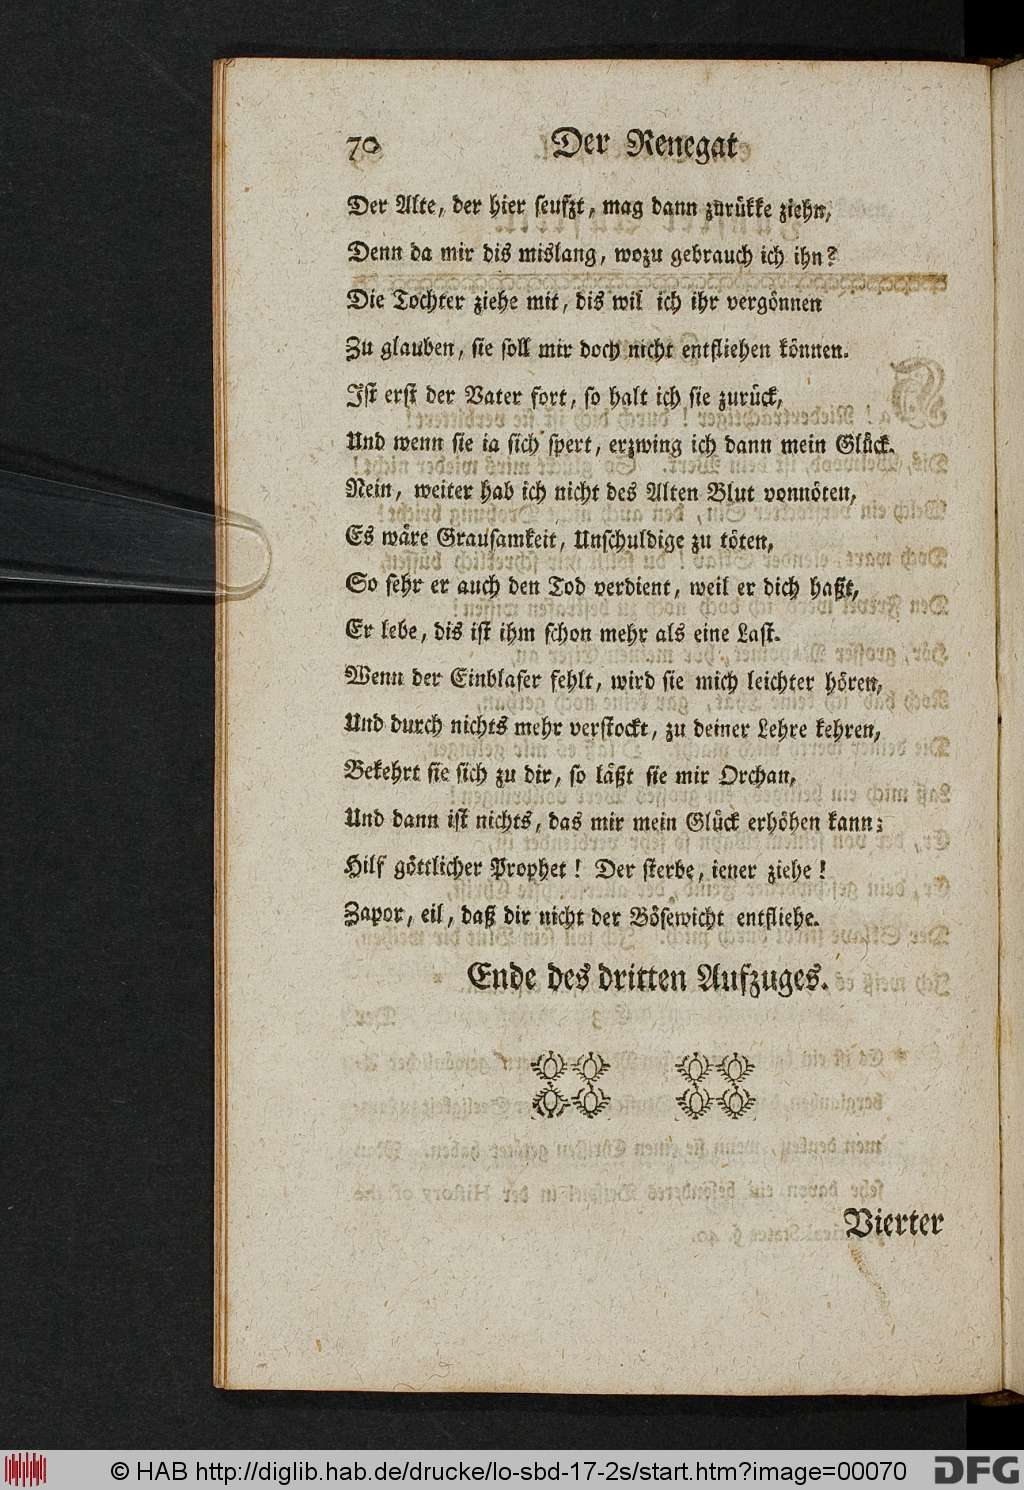 70 Der Renegat
Der Alte, der hier seufzt, mag dann zurükke ziehn,
Denn da mir dis mislang, wozu gebrauch ich ihn?
Die Tochter ziehe mit, dis wil ich ihr vergönnen
Zu glauben, sie soll mir doch nicht entfliehen können.
Ist erst der Vater fort, so halt ich sie zurück,
Und wenn sie ia sich spert, erzwing ich dann mein Glück.
Nein, weiter hab ich nicht des Alten Blut vonnöten,
Es wäre Grausamkeit, Unschuldige zu töten,
So sehr er auch den Tod verdient, weil er dich haßt,
Er lebe, dis ist ihm schon mehr als eine Last.
Wenn der Einblaser fehlt, wird sie mich leichter hören,
Und durch nichts mehr verstockt, zu deiner Lehre kehren,
Bekehrt sie sich zu dir, so läßt sie mir Orchan,
Und dann ist nichts, das mir mein Glück erhöhen kann;
Hilf göttlicher Prophet! Der sterbe, iener ziehe!
Zapor, eil, daß dir nicht der Bösewicht entfliehe.
Ende des dritten Aufzuges.
Vierter
© HAB http://diglib.hab.de/drucke/lo-sbd-17-2s/start.htm?image=00070 DFG